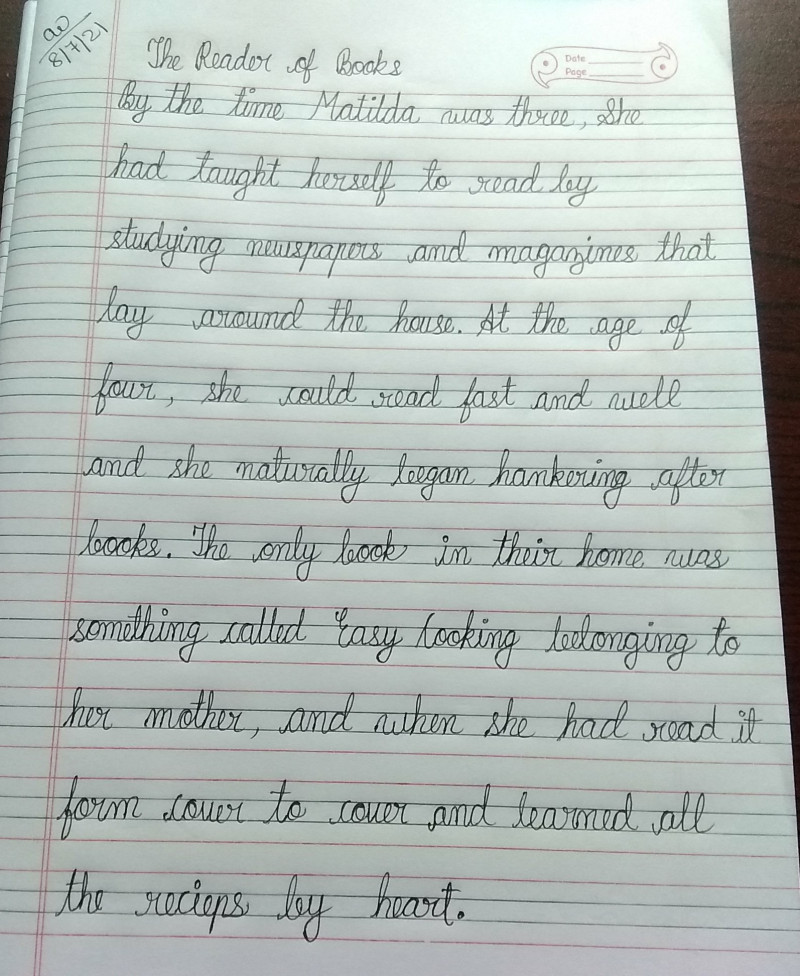 8/7/21
The Reader of Books
Date
Page
By the time Matilda was three, She
had taught herself to read by
studying newspapers and magazines that
lay around the house. At the age of
four, she could read fast and well
and she naturally began hankering after
books. The only book in their home was
something called Easy Cooking belonging to
her mother, and when she had read it
form cover to cover and learned all
the recieps by heart.